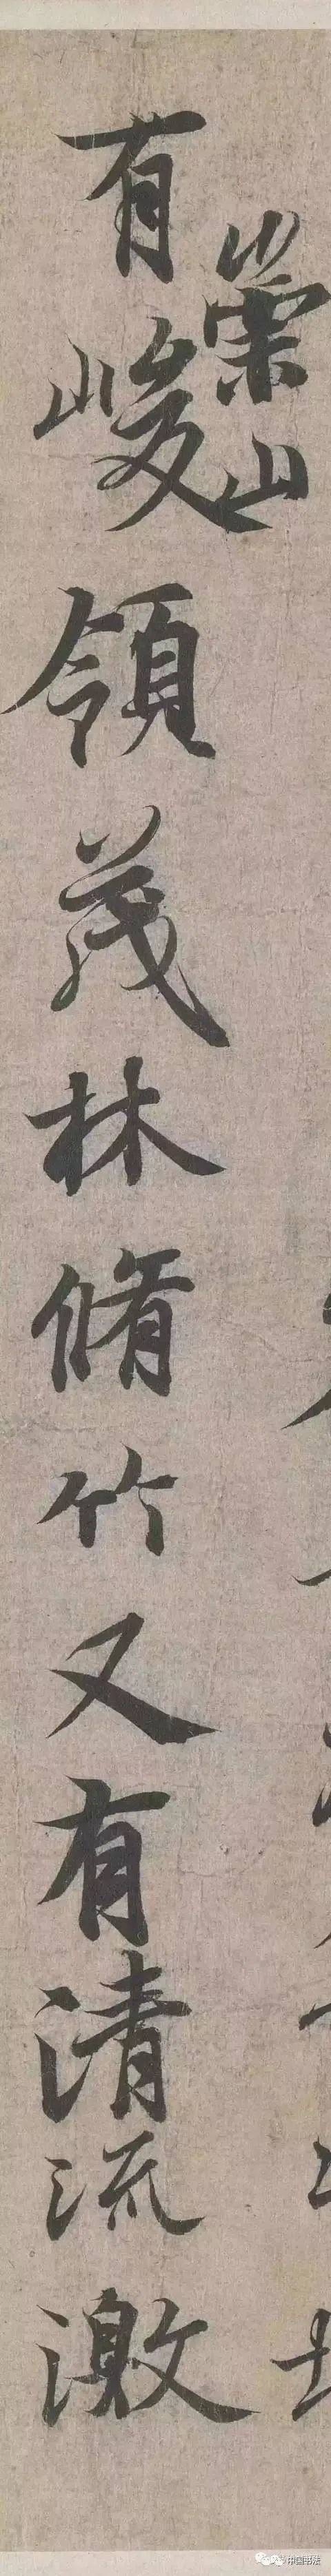 有峻領茂林脩竹又有清流激
崇山
中国书法